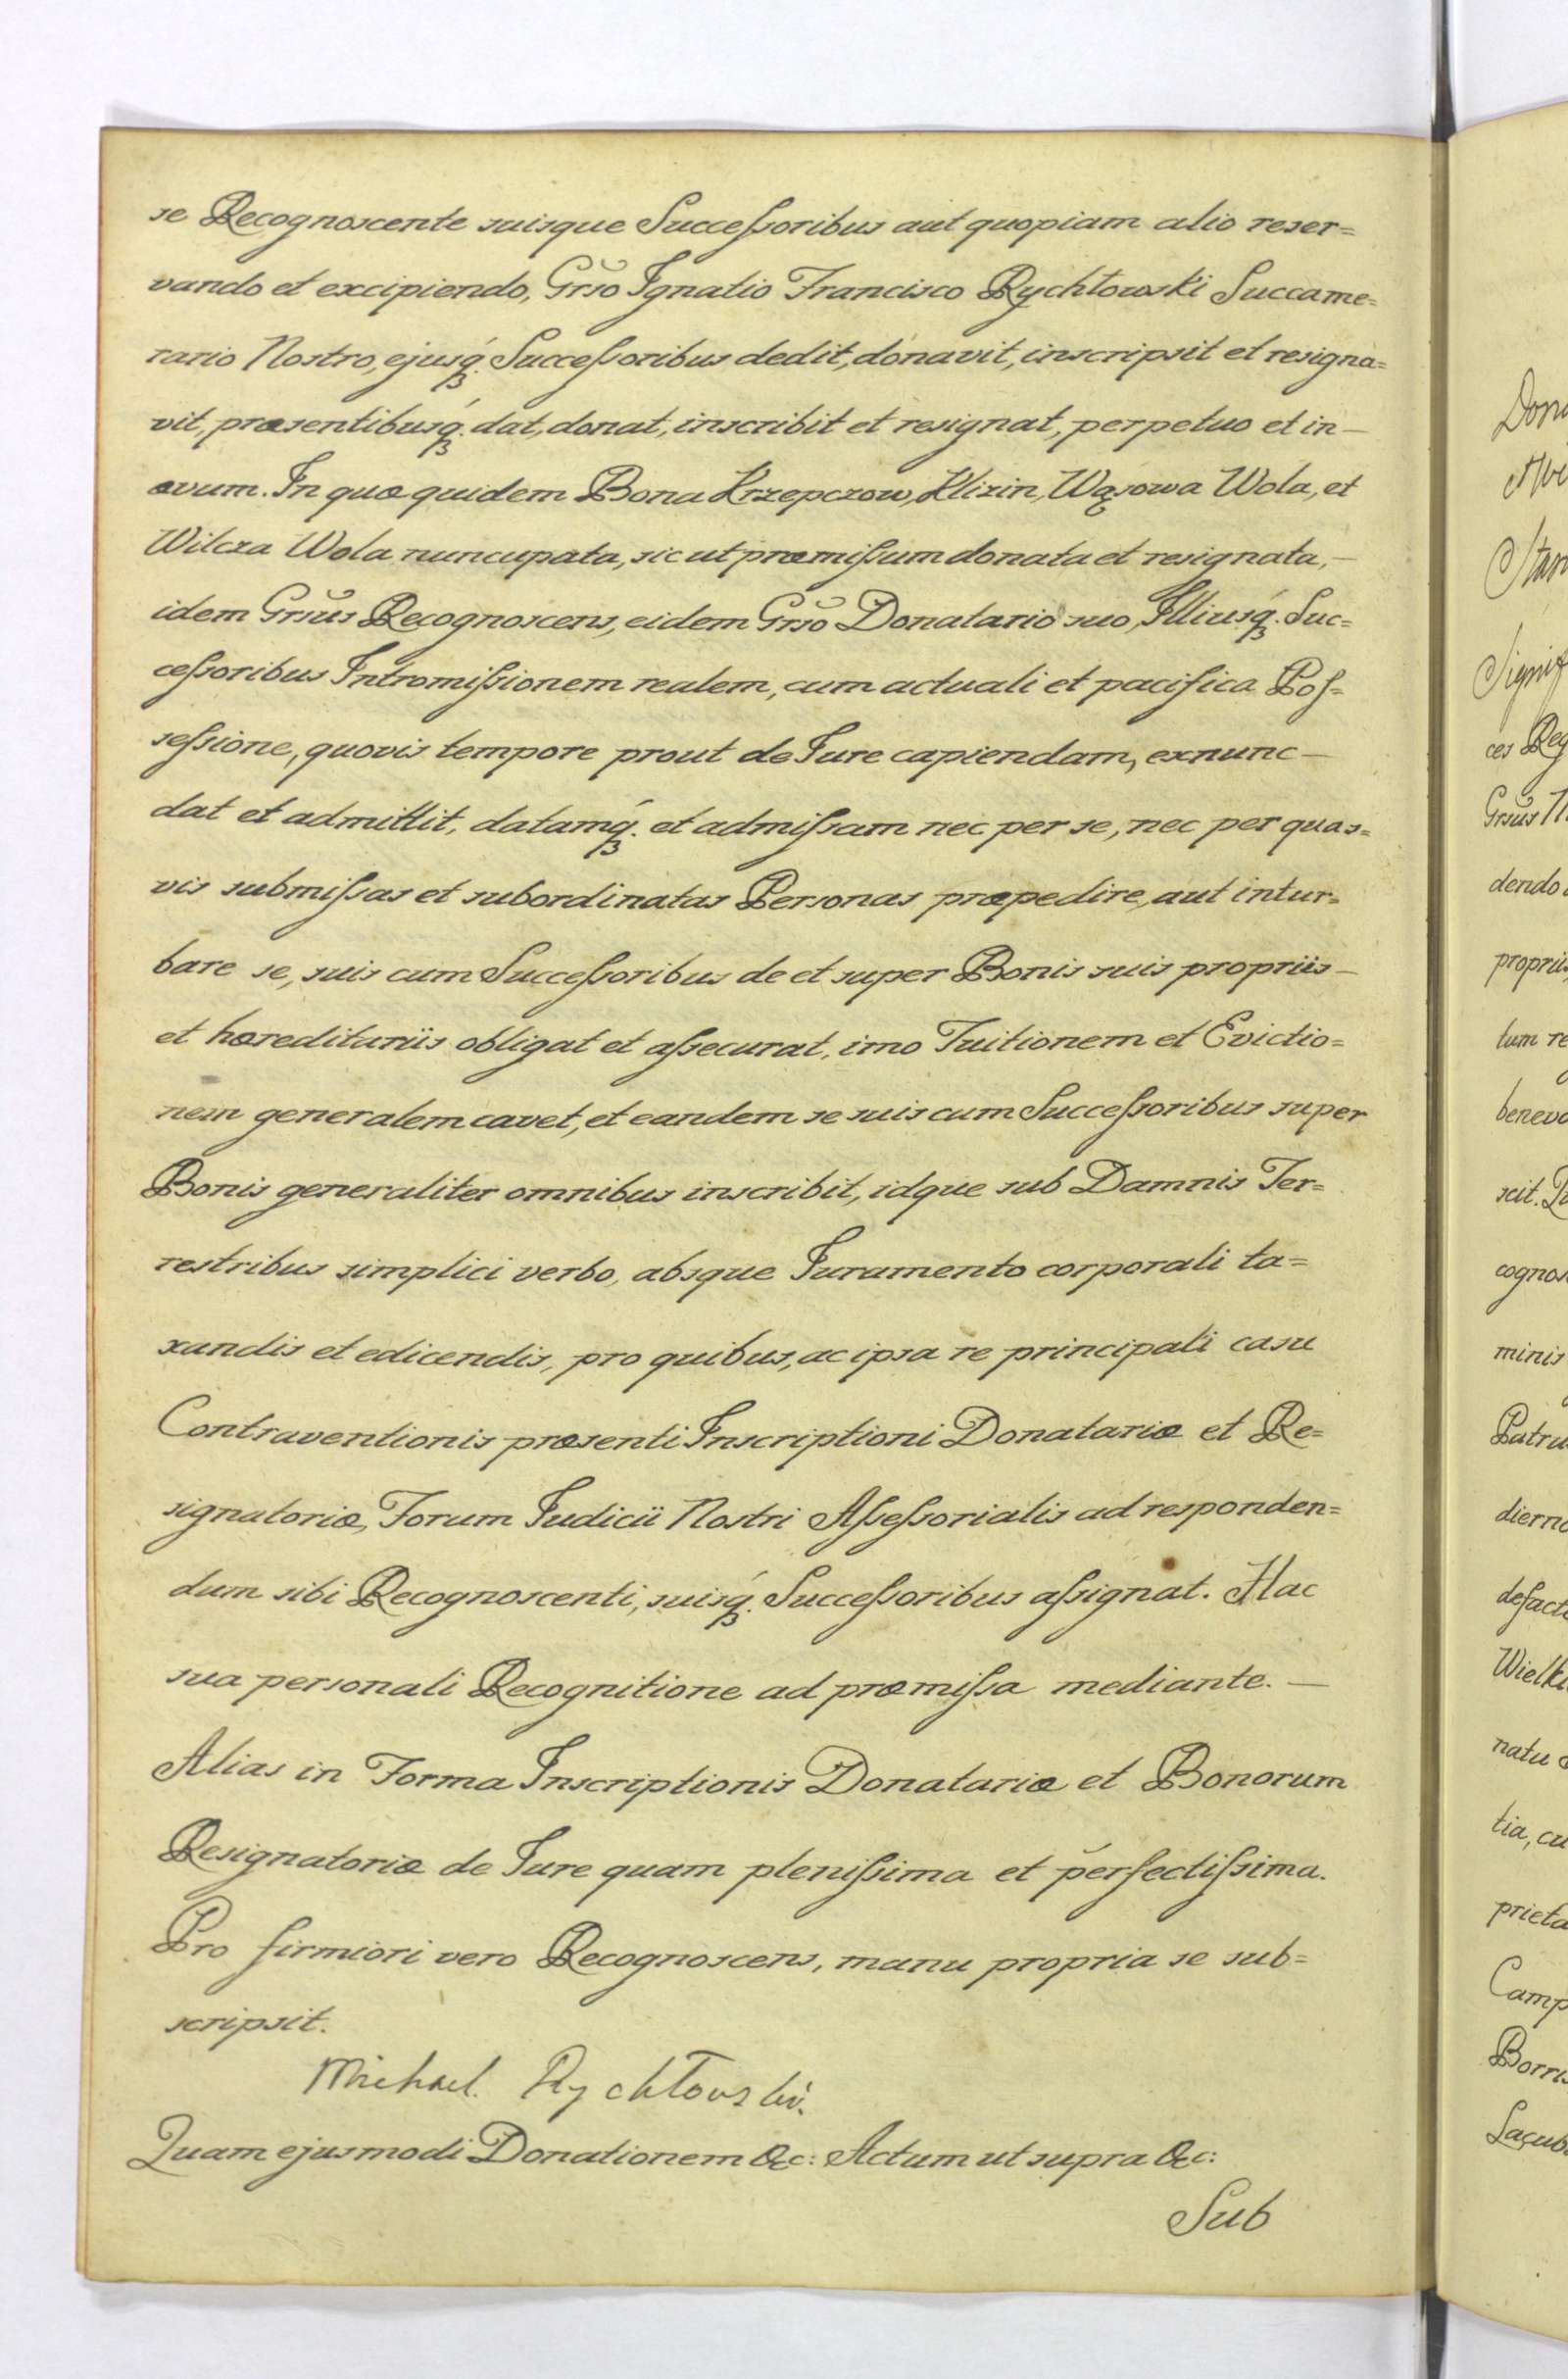 se Recognoscente suisque Successoribus aut quopiam alio reser=
vando et excipiendo, Grso Ignatio Francisco Rychłowski Succame=
rario Nostro, ejusq́. Successoribus dedit, donavit, inscripsit et resigna=
vit, præsentibusq́. dat, donat, inscribit et resignat, perpetuo et in—
ævum. In quæ quidem Bona Krzepczow, Klizin, Wąsowa Wola, et
Wilcza Wola nuncupata, sic ut præmissum donata et resignata,—
idem Grsus Recognoscens, eidem Grso Donatario suo, Illiusq́. Suc=
cessoribus Intromissionem realem, cum actuali et pacifica Pos=
sessione, quovis tempore prout de Jure capiendam, exnunc—
dat et admittit, datamq́. et admissam nec per se, nec per quas=
vis submissas et subordinatas Personas præpedire, aut intur=
bare se, suis cum Successoribus de et super Bonis suis propriis—
et hæreditariis obligat et assecurat, imo Tuitionem et Evictio=
nem generalem cavet, et eandem se suis cum Successoribus super
Bonis generaliter omnibus inscribit, idque sub Damnis Ter=
restribus simplici verbo, absque Juramento corporali ta=
xandis et edicendis, pro quibus, ac ipsa re principali casu
Contraventionis præsenti Inscriptioni Donatariæ et Re=
signatoriæ, Forum Judicii Nostri Assessorialis ad responden=
dum sibi Recognoscenti, suisq́. Successoribus assignat. Hac
sua personali Recognitione ad præmissa mediante.—
Alias in Forma Inscriptionis Donatariæ et Bonorum
Resignatoriæ de Jure quam plenissima et perfectissima.
Pro firmiori vero Recognoscens, manu propria se sub=
scripsit.
Michael. Rychłowski.
Quam ejusmodi Donationem &c: Actum ut supra &c:
Sub
Signif
ces Reg
Grsus
dendo
propriis
tum re
benevo
scit.
cognos
minis
Patru
dierno
defacto
Wielki
natu
tia, cu
prieta
Camp